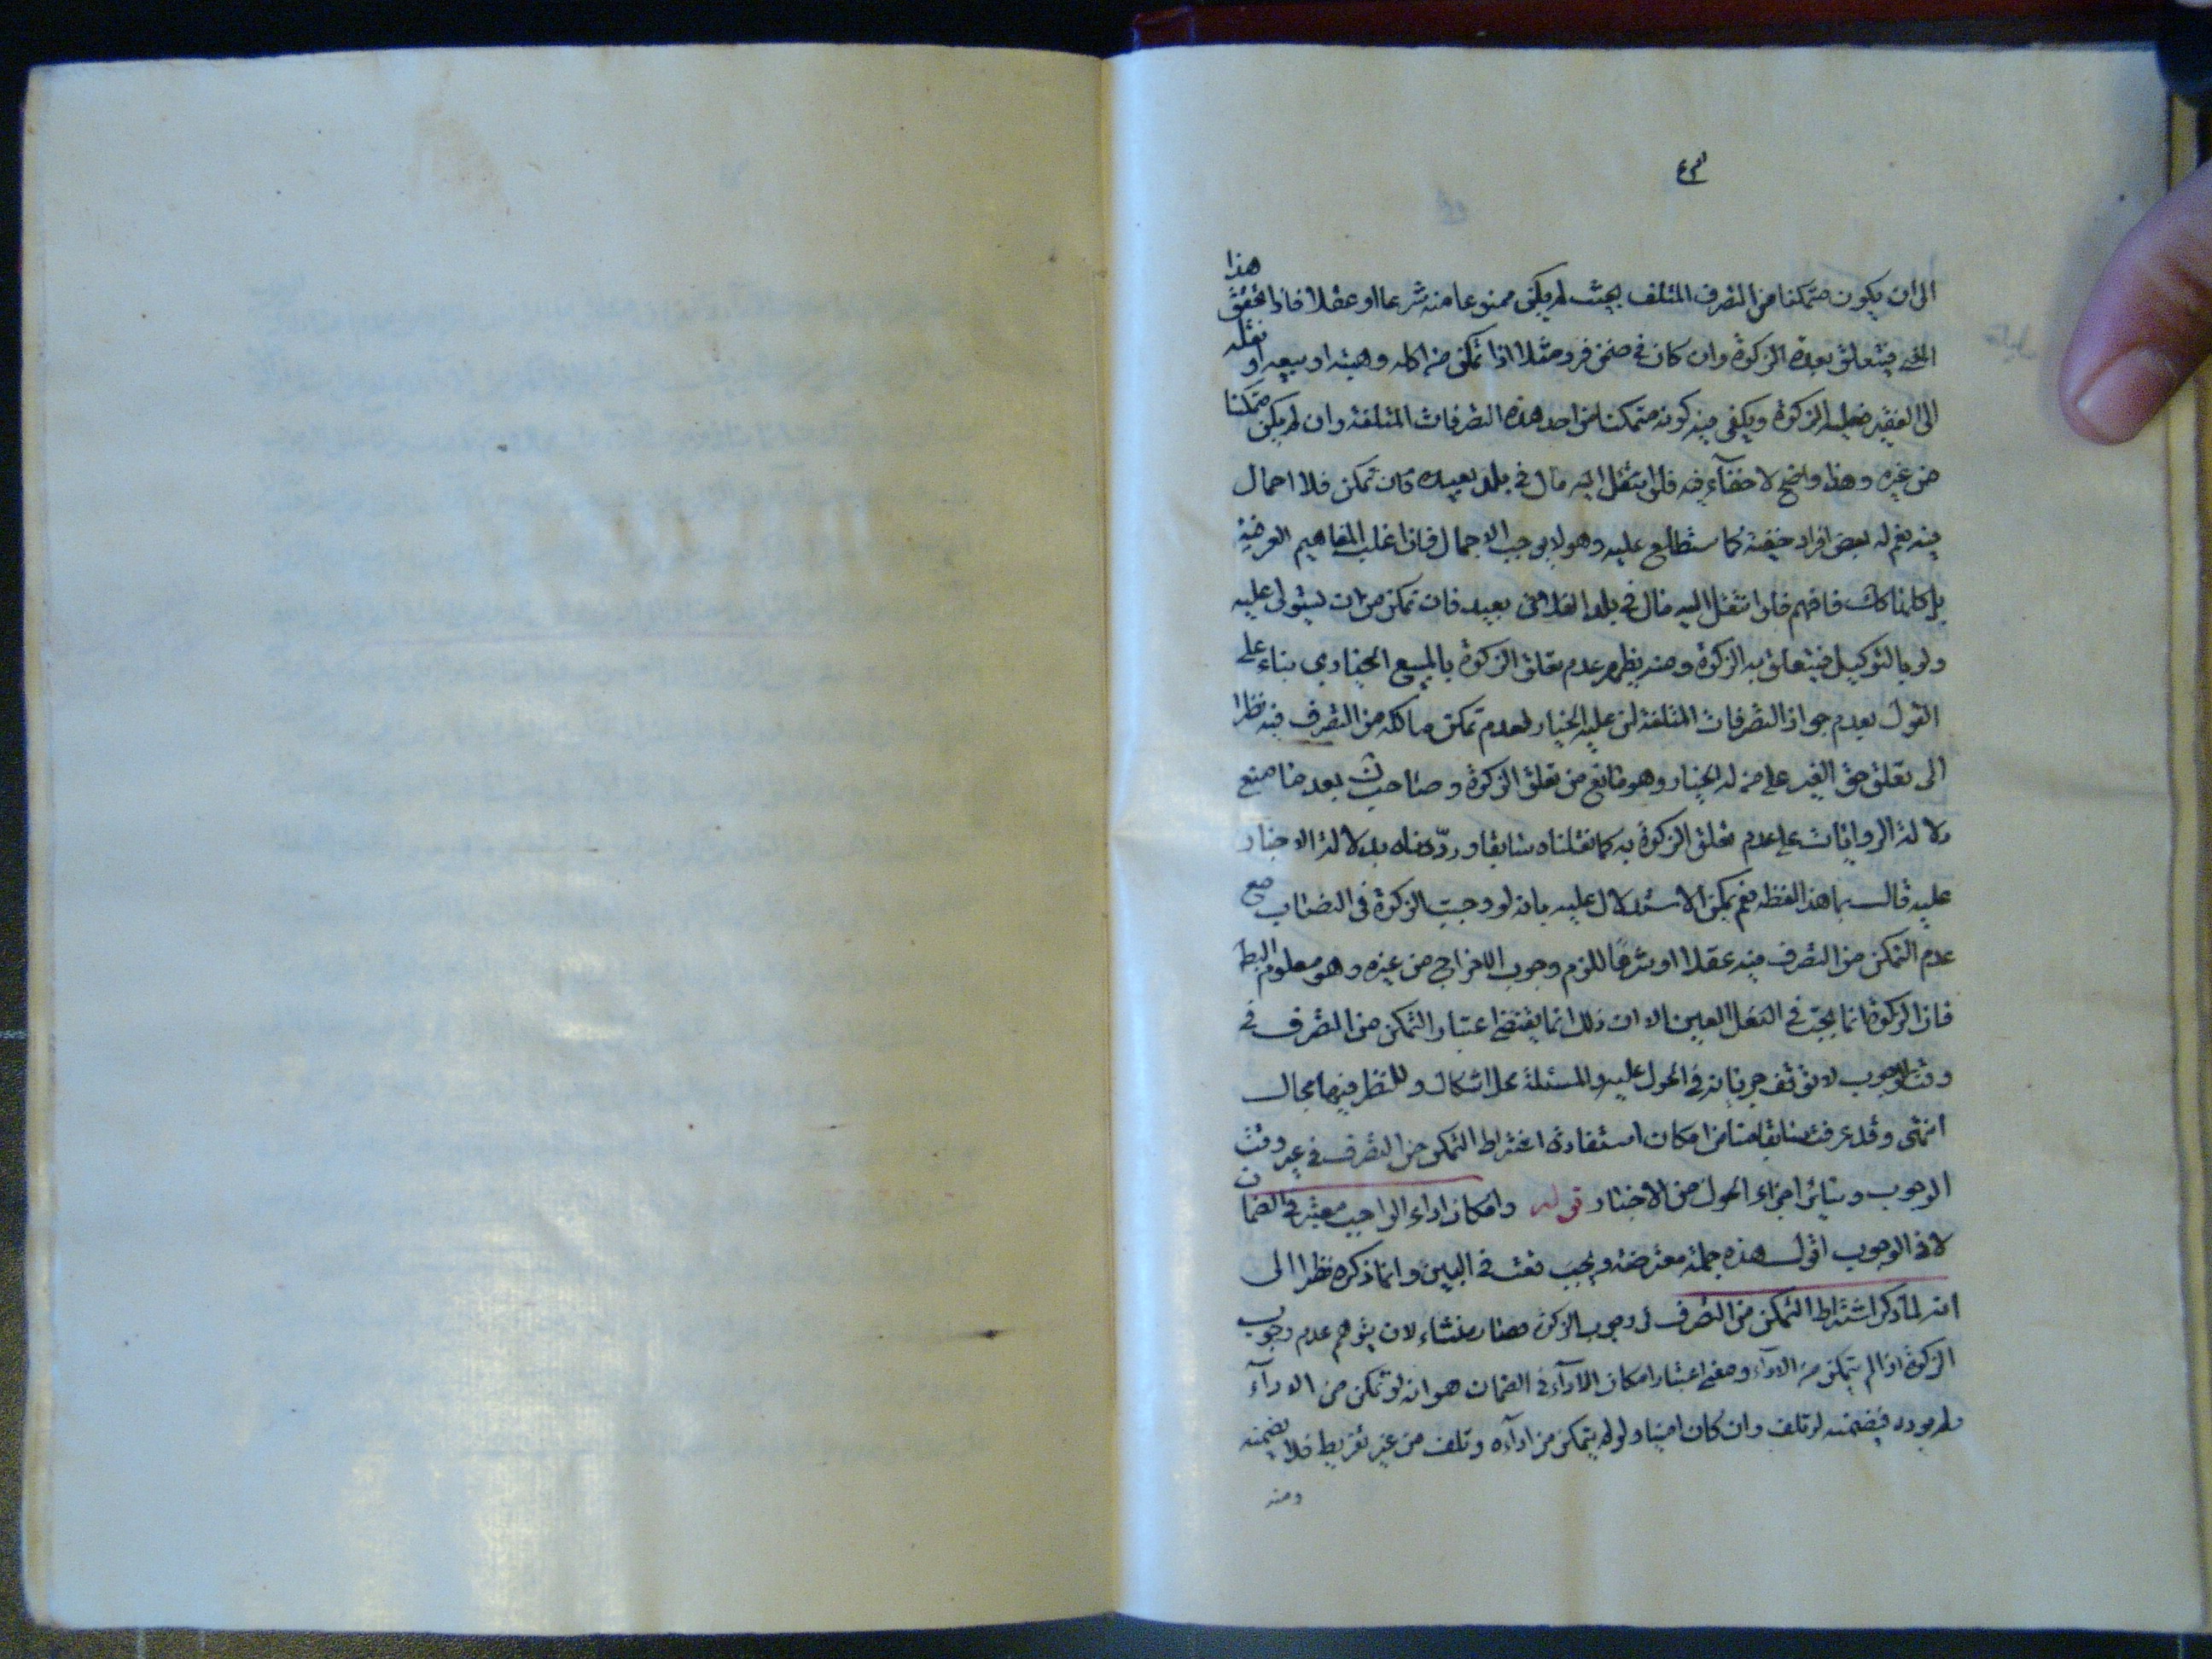 الى ان يكون متمكنا من التصرف المتلف بحيث لم يكن ممنوعا منه شرعا او عقلا فاذا تحقق هذا
فيتعلق بعده الزكوة وان كان في ضمن فرد مثلا اذا تمكن من اكله وهبته او بيعه او نقله
الى الفقير فعليه الزكوة ويكفى فيه كونه متمكنا من احد هذه التصرفات المتلفة وان لم يكن متمكنا
من غيره وهذا واضح لا خفآء فيه فلو انتقل اليه مال في بلد بعيده فان تمكن فلا اجمال
فيه نعم له بعض افراد خفية كما ستطلع عليه وهو لا يوجب الاجمال فان اغلب المفاهيم العرفية
بل كلها كك فافهم فلو انتقل اليه مال في بلد بعيد فان تمكن من ان يستولى عليه
ولو بالتوكيل فيتعلق به الزكوة ومنه يظهر عدم تعلق الزكوة بالمبيع الخيارى بناء على
القول بعدم جواز التصرفات المتلفة لمن عليه الخيار لعدم تمكن مالكه من التصرف فيه نظرا
الى تعلق حق الغير على من له الخيار وهو مانع من تعلق الزكوة وصاحب ك بعد ما منع
دلالة الروايات على عدم تعلق الزكوة به كما نقلناه سابقا ورددناه بدلالة الاخبار
عليه قال بما هذا لفظه نعم يمكن الاستدلال عليه بانه لو وجبت الزكوة في النصاب مع
عدم التمكن من التصرف فيه عقلا او شرعا للزم وجوب الاخراج من غيره وهو معلوم البط
فان الزكوة انما يجب في العين الا ان ذلك انما يقتضى اعتبار التمكن من التصرف في
وقت الوجوب لا توقف جريانه في الحول عليه والمسئلة محل اشكال وللنظر فيها مجال
انتهى وقد عرفت سابقا منا من امكان استفادة اشتراط التمكن من التصرف في غير وقت
الوجوب وسائر اجزاء الحول من الاخبار قوله وامكان اداء الواجب معتبر في الضمان
لا في الوجوب اقول هذه جملة معترضة وقعت في البين وانما ذكره نظرا الى
انه لما ذكر اشتراط التمكن من التصرف في وجوب الزكوة فصار منشاء لان يتوهم عدم وجوب
الزكوة اذا لم يتمكن من الاداء ومعنى اعتبار امكان الاداء في الضمان هو انه لو تمكن من الادآء
ولم يوده فيضمنه لو تلف وان كان امينا ولو لم يتمكن من ادآءه وتلف من غير تفريط فلا يضمنه
ومنه